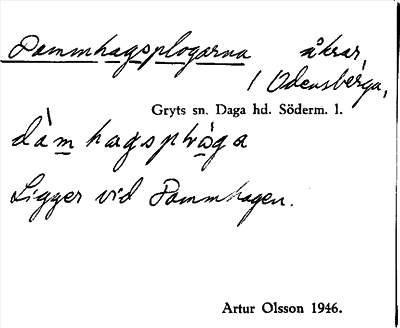 Dammhagsplogarna åkrar,
/ Odensberga,
Gryts sn. Daga hd. Söderm. l.
dàmhagsplὼga
Ligger vid Dammhagen.
Artur Olsson 1946.